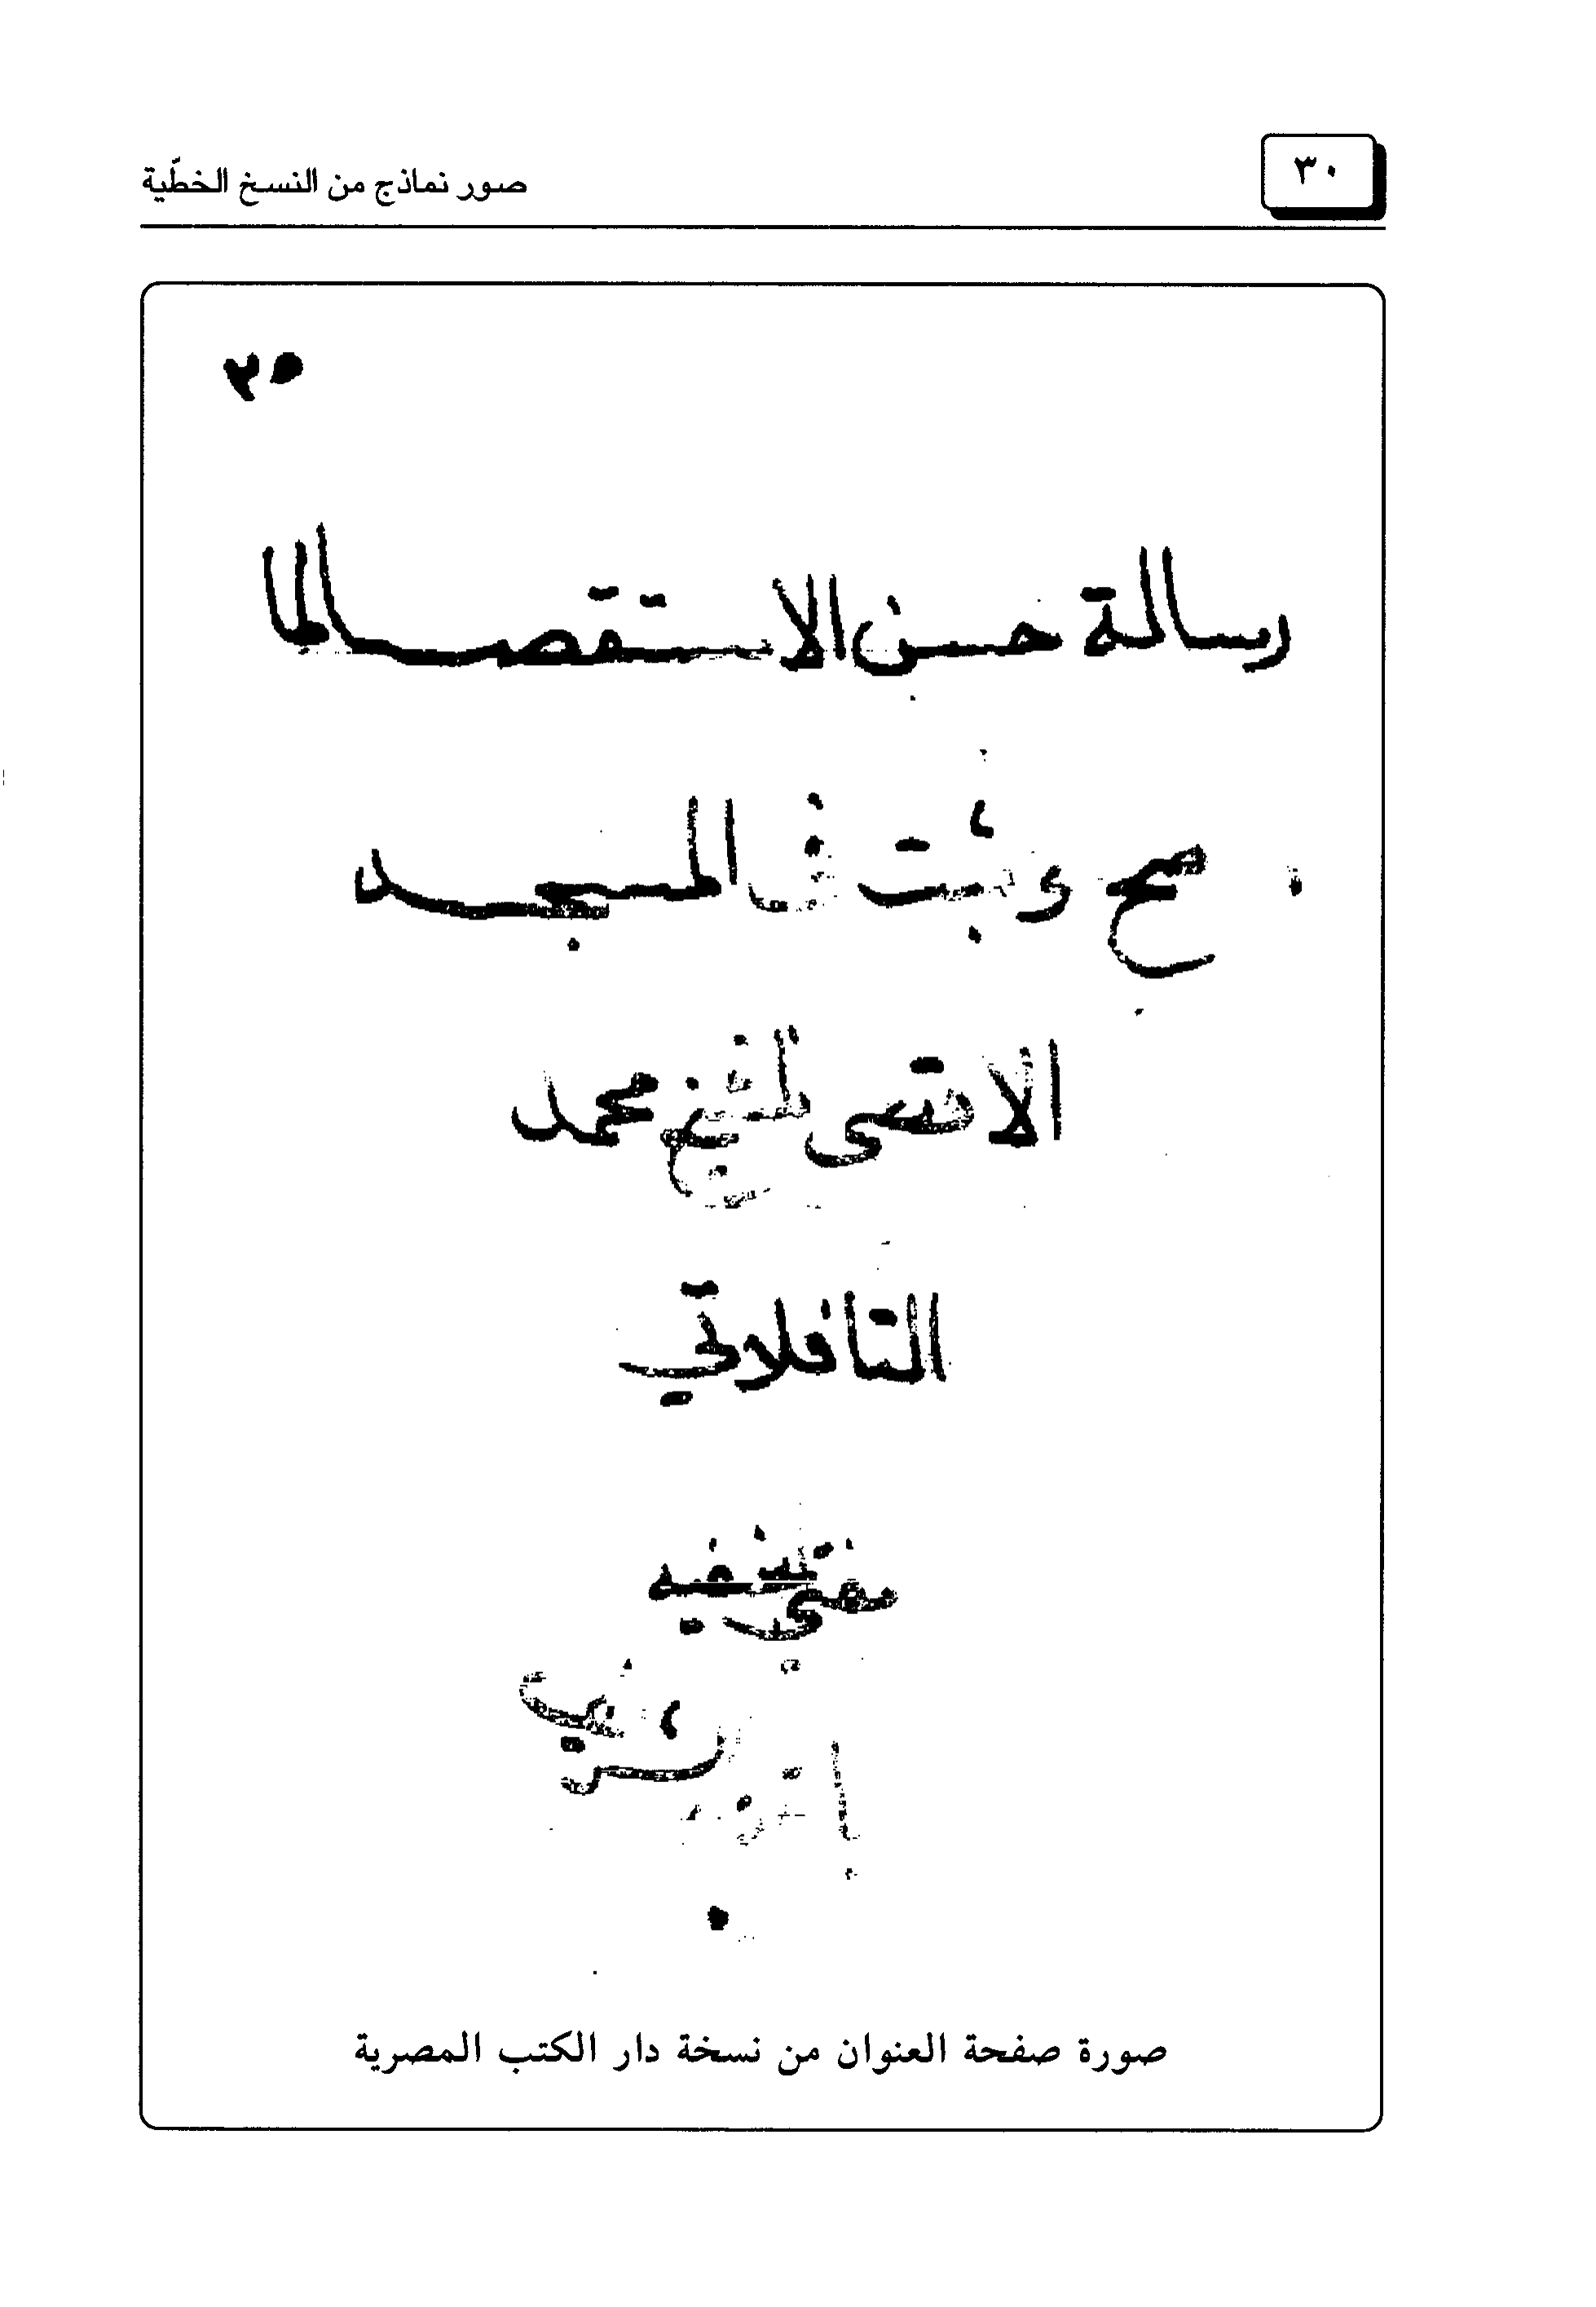 ٣٠
صور نماذج من النسخ الخطّية
٣٥
رسالة حسن الاستقصا لما
صح وثبت في المسجد
الاقصى للشيخ محمد
التافلاتي
مفتي الحنفية
صورة صفحة العنوان من نسخة دار الكتب المصرية